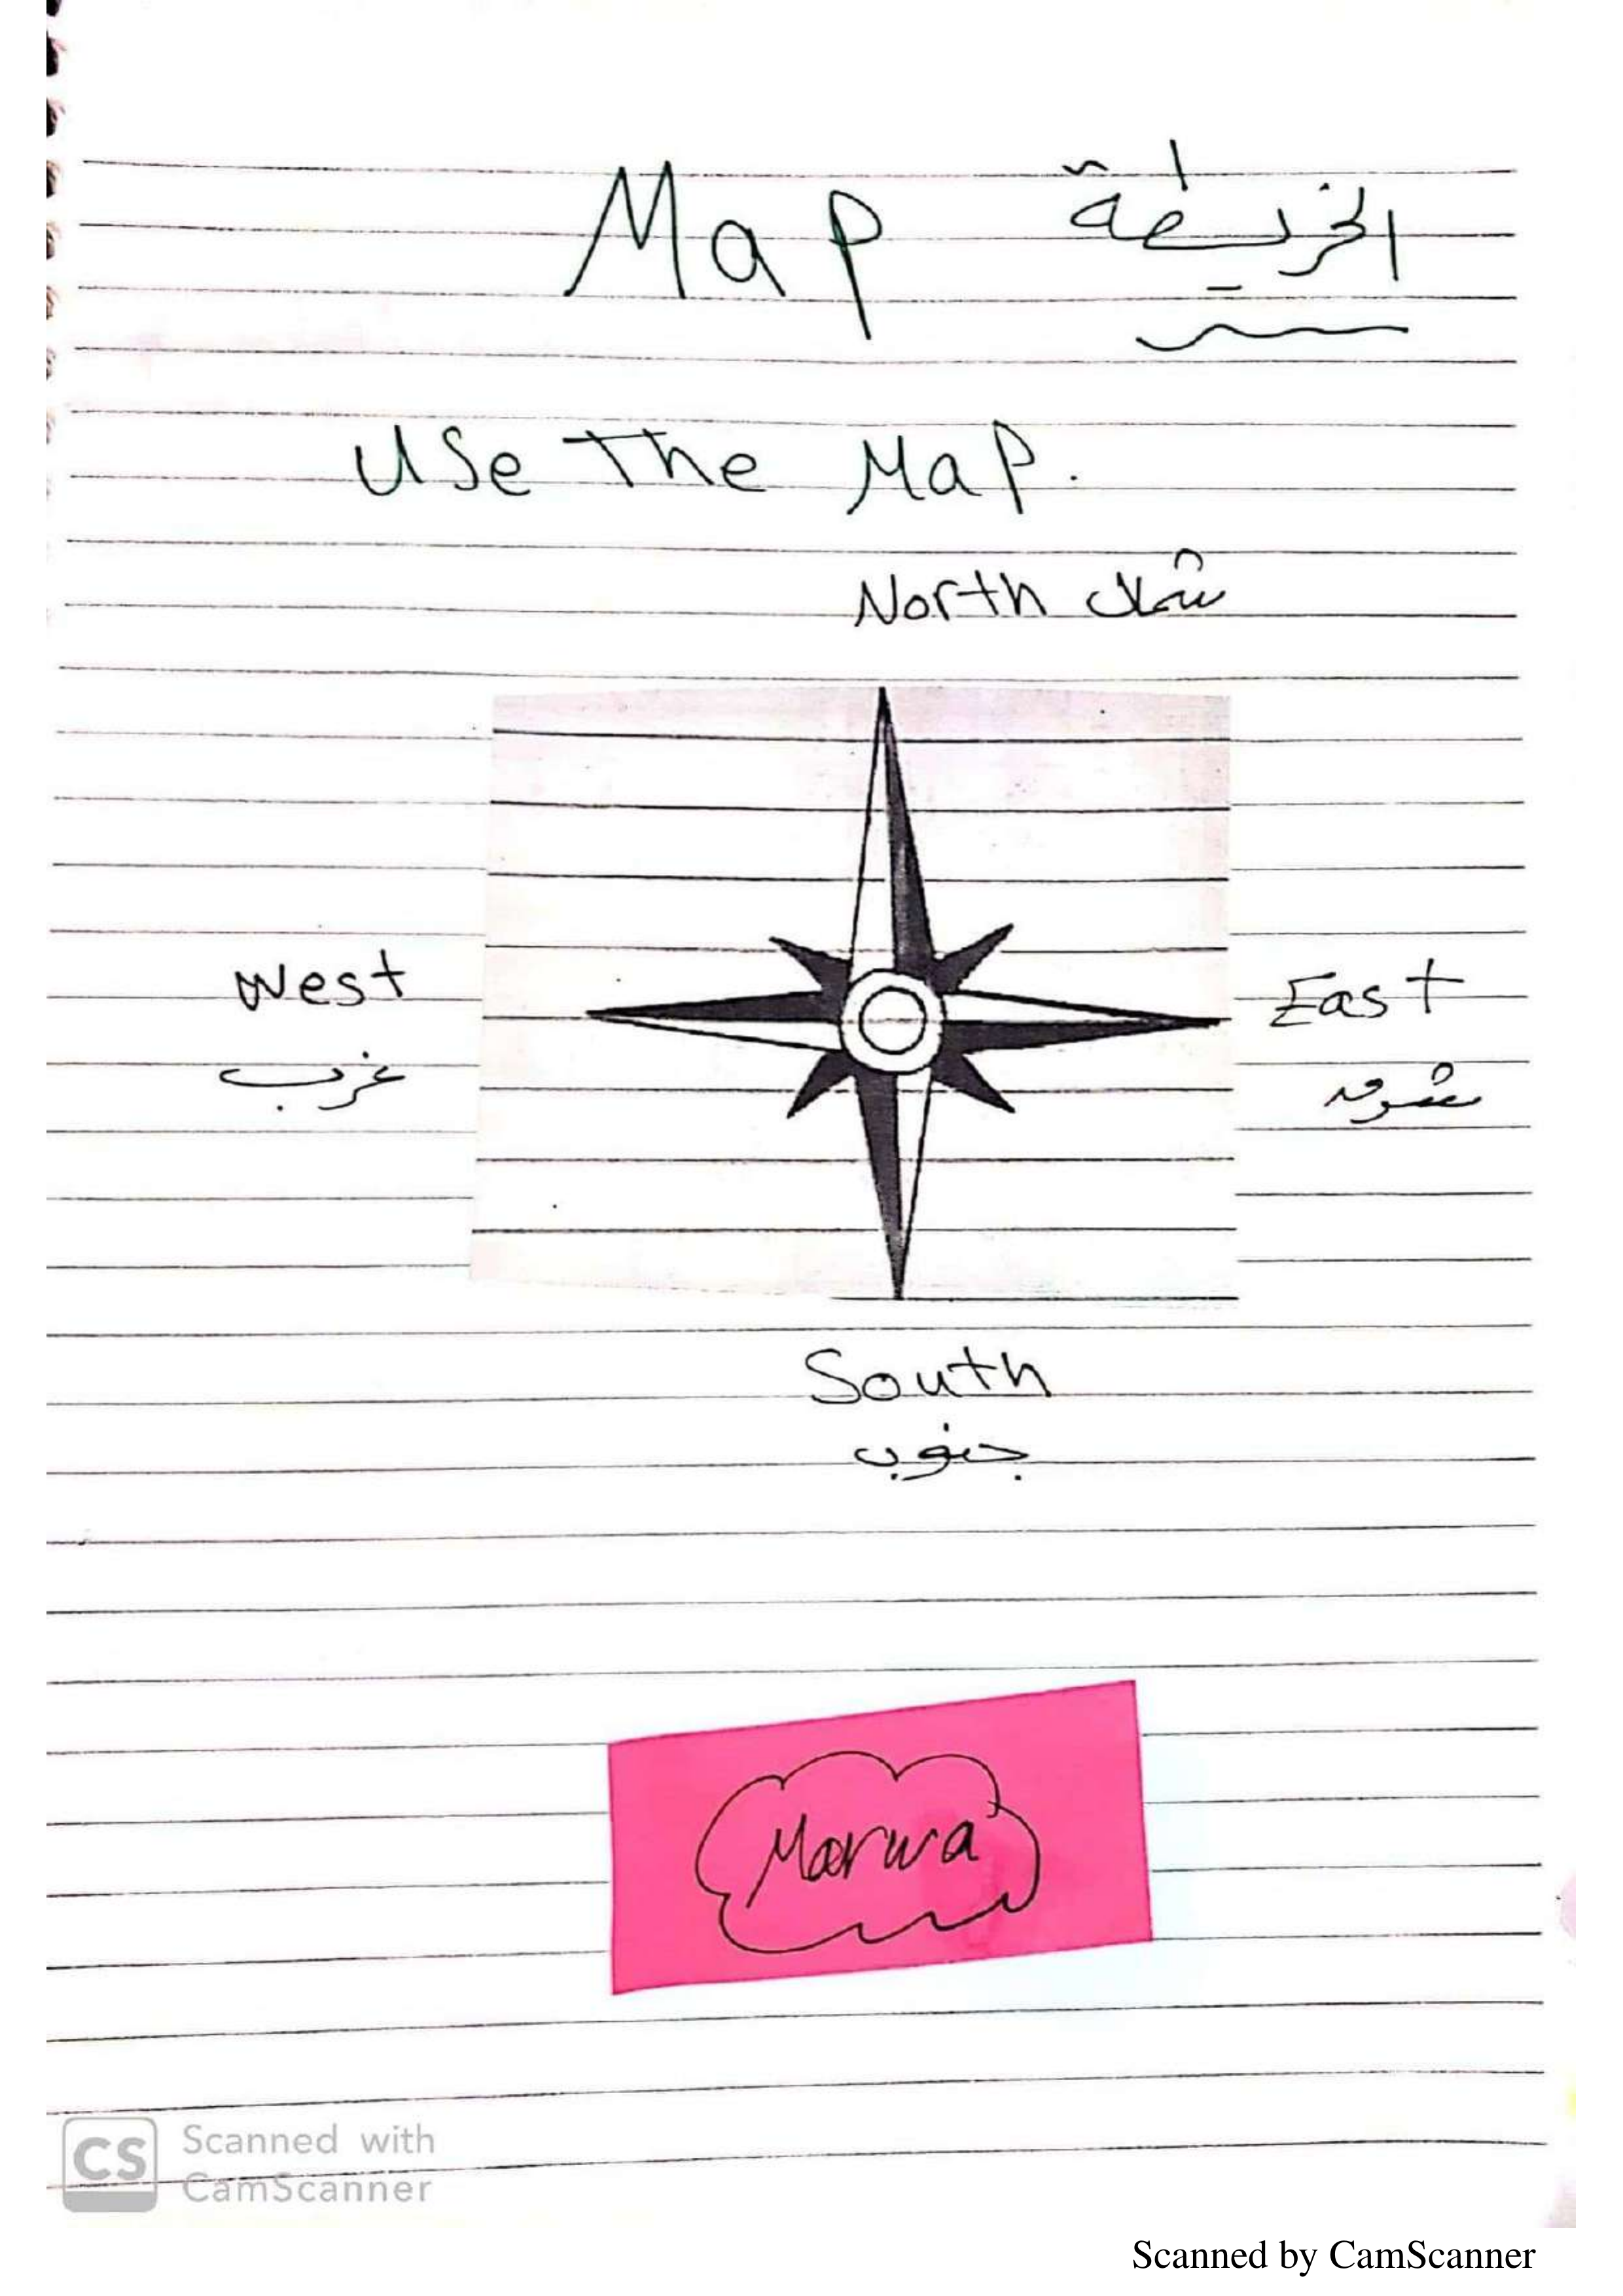 Map الخريطة
Use The Map.
North شمال
West
غرب
East
شرق
South
جنوب
Marwa
CS Scanned with
CamScanner
Scanned by CamScanner